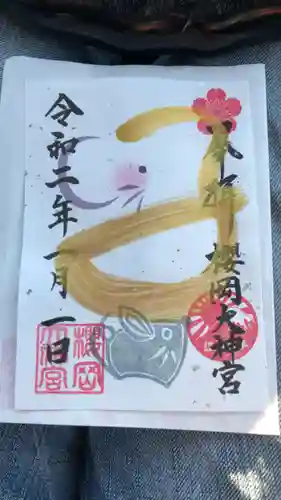 奉拝 櫻岡大神宮
令和二年一月一日
櫻岡大神宮